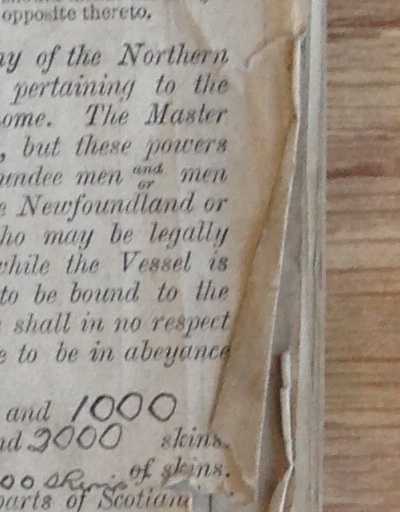 opposite thereto.
ny of the Northern
pertaining to the
ome. The Master
, but these powers
undee men and or men
e Newfoundland or
ho may be legally
while the Vessel is
to be bound to the
shall in no respect
e to be in abeyance
and 1000
nd 2000 skins.
00 skins of skins.
parts of Scotland